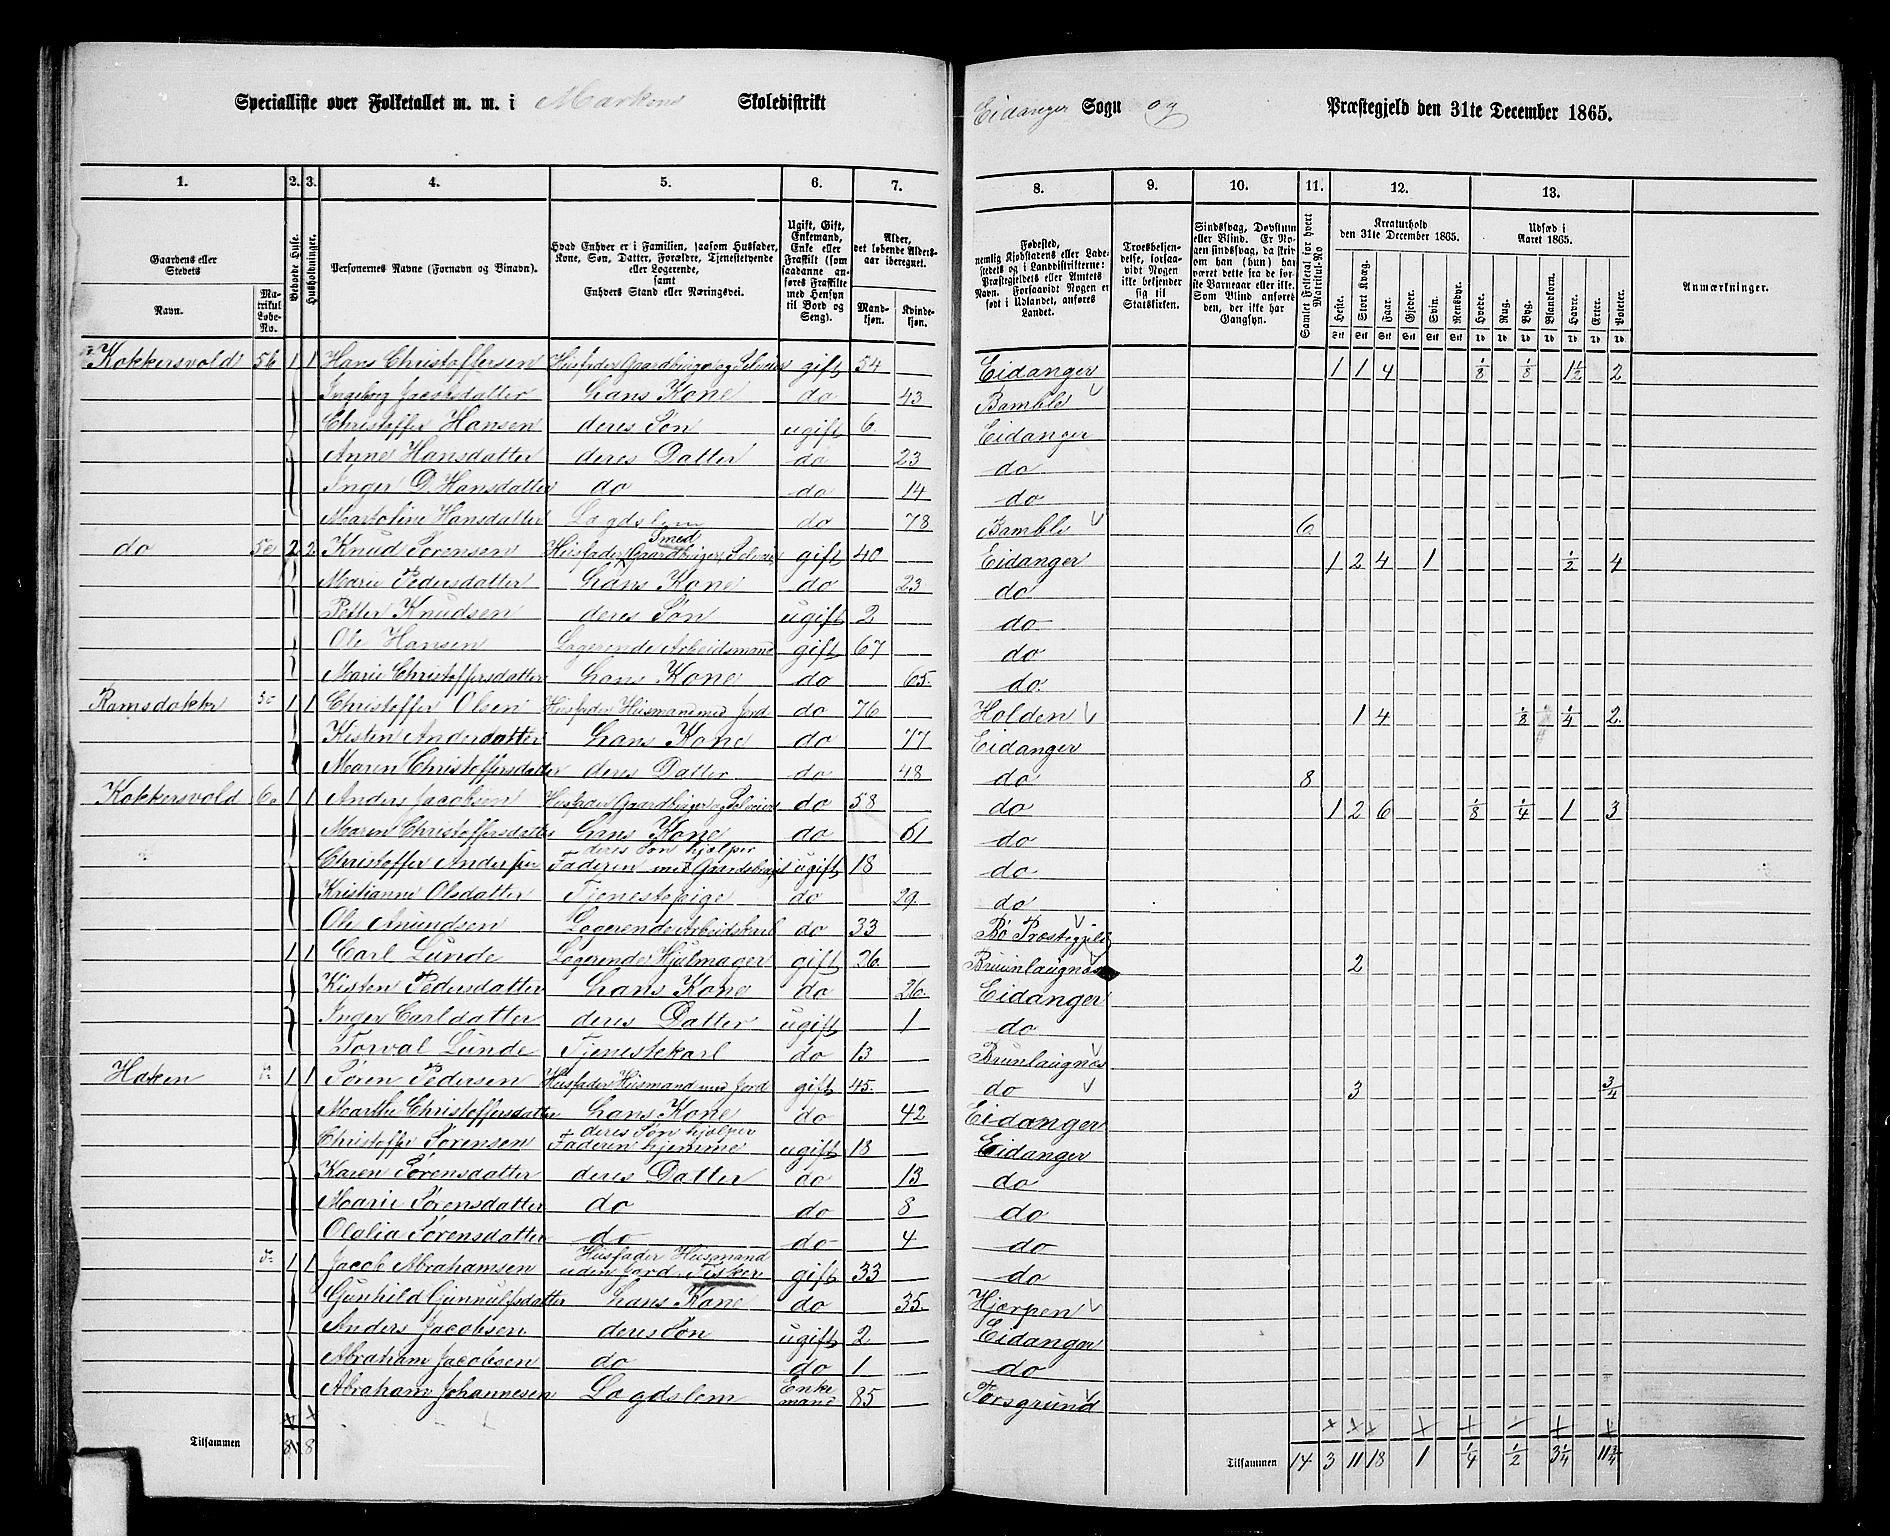 Specialliste over Folketallet m. m. i Markens Skoledistrikt
Eidanger Sogn og Præstegjeld den 31te December 1865.
1. 2. 3. 4. 5. 6. 7. 8. 9. 10. 11. 12. 13.
Gaardens eller Stedets
Navn.
Matrikul Løbe-No.
Beboede Huse.
Husholdninger.
Personernes Navne (Fornavn og Binavn).
Hvad Enhver er i Familien, saasom Husfader, Kone, Søn, Datter, Forældre, Tjenestetyende eller Logerende, samt Enhvers Stand eller Næringsvei.
Ugift, Gift, Enkemand, Enke eller Fraskilt (som saadanne anføres Fraskilte med Hensyn til Bord og Seng).
Alder, det løbende Aldersaar iberegnet.
Mandkjøn. Kvindekjøn.
Fødested, nemlig Kjøbstadens eller Ladestedets og i Landdistrikterne: Præstegjeldets eller Amtets Navn. Forsaavidt Nogen er født i Udlandet, anføres Landet.
Troesbekjendelse, forsaavidt Nogen ikke bekjender sig til Statskirken.
Sindssvag, Døvstum eller Blind. Er Nogen sindssvag, da skrives om han (hun) har været dette fra de første Barneaar eller ikke. Som Blind anføres den, der ikke har Gangsyn.
Samlet Folketal for hvert Matrikul-No
Kreaturhold den 31te December 1865.
Heste. Stort Kvæg. Faar. Gjeder. Svin. Rensdyr.
Udsæd i Aaret 1865.
Hvede. Rug. Byg. Blandkorn. Havre. Erter. Poteter.
Anmærkninger.
Kokkersvold 56 1 1 Hans Christoffersen Husfader Gaardbruger og Selveier gift 54 Eidanger 1 1 4 1/8 1/8 1 1/2 2
Ingeborg Jacobsdatter Hans Kone do 43 Bamble
Christoffer Hansen deres Søn ugift 6 Eidanger
Anne Hansdatter deres Datter do 23 do
Inger D. Hansdatter do do 14 do
Martoline Hansdatter Lægdslem do 78 Bamble 6
do 2 2 Knud Sørensen Husfader Gaardbruger Selveier Smed gift 40 Eidanger 1 2 4 1 1/2 4
Marie Pedersdatter Hans Kone do 23 do
Petter Knudsen deres Søn ugift 2 do
Ole Hansen Logerende Arbeidsmand gift 67 do
Marie Christoffersdatter Hans Kone do 65 do
Ramsdokker 1 1 Christoffer Olsen Husfader Husmand med Jord do 76 Holden 1 4 1/8 1/4 2
Kisten Andersdatter Hans Kone do 77 Eidanger
Maren Christoffersdatter deres Datter do 48 do 8
Kokkersvold 1 1 Anders Jacobsen Husfader Gaardbruger og Selveier do 58 do 1 2 6 1/8 1/4 1 3
Maren Christoffersdatter Hans Kone do 61 do
Christoffer Andersen deres Søn hjælper Faderen med Gaardsbruget ugift 18 do
Kristianne Olsdatter Tjenestepige do 29 do
Ole Amundsen Logerende Arbeidskarl do 33 Bø Præstegjeld
1 1 Carl Lunde Logerende Hjulmager gift 26 Brunlaugnæs 2
Kisten Pedersdatter Hans Kone do 26 Eidanger
Inger Carldatter deres Datter ugift 1 do
Torval Lunde Tjenestekarl do 13 Brunlaugnæs
Haken 1 1 Søren Pedersen Husfader Husmand med Jord gift 45 do 3 3/4
Marthe Christoffersdatter Hans Kone do 42 Eidanger
Christoffer Sørensen deres Søn hjælper Faderen hjemme ugift 18 Eidanger
Karen Sørensdatter deres Datter do 13 do
Marie Sørensdatter do do 8 do
Olalia Sørensdatter do do 4 do
1 1 Jacob Abrahamsen Husfader Husmand uden Jord. Fisker gift 33 do
Gunhild Gunnulfsdatter Hans Kone do 35 Hjerpen
Anders Jacobsen deres Søn ugift 2 Eidanger
Abraham Jacobsen do do 1 do
Abraham Johannesen Lægdslem Enkemand 85 Porsgrund
Tilsammen 8 8
Tilsammen 14 3 11 18 1 1/4 1/2 3 1/4 11 3/4